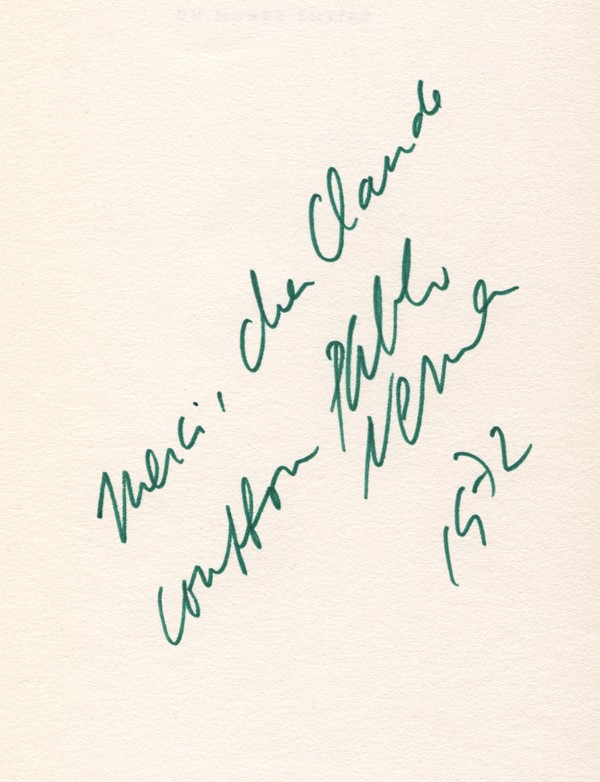 Merci, cher Claude
Couffon
Pablo
Neruda
1972